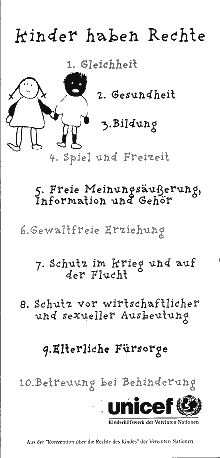 Kinder haben Rechte
1. Gleichheit
2. Gesundheit
3.Bildung
4. Spiel und Freizeit
5. Freie Meinungsäußerung,
Information und Gehör
6.Gewaltfreie Erziehung
7. Schutz im Krieg und auf
der Flucht
8. Schutz vor wirtschaftlicher
und sexueller Ausbeutung
9.Elterliche Fürsorge
10.Betreuung bei Behinderung
unicef
Kinderhilfswerk der Vereinten Nationen
Aus der "Konvention über die Rechte des Kindes" der Vereinten Nationen